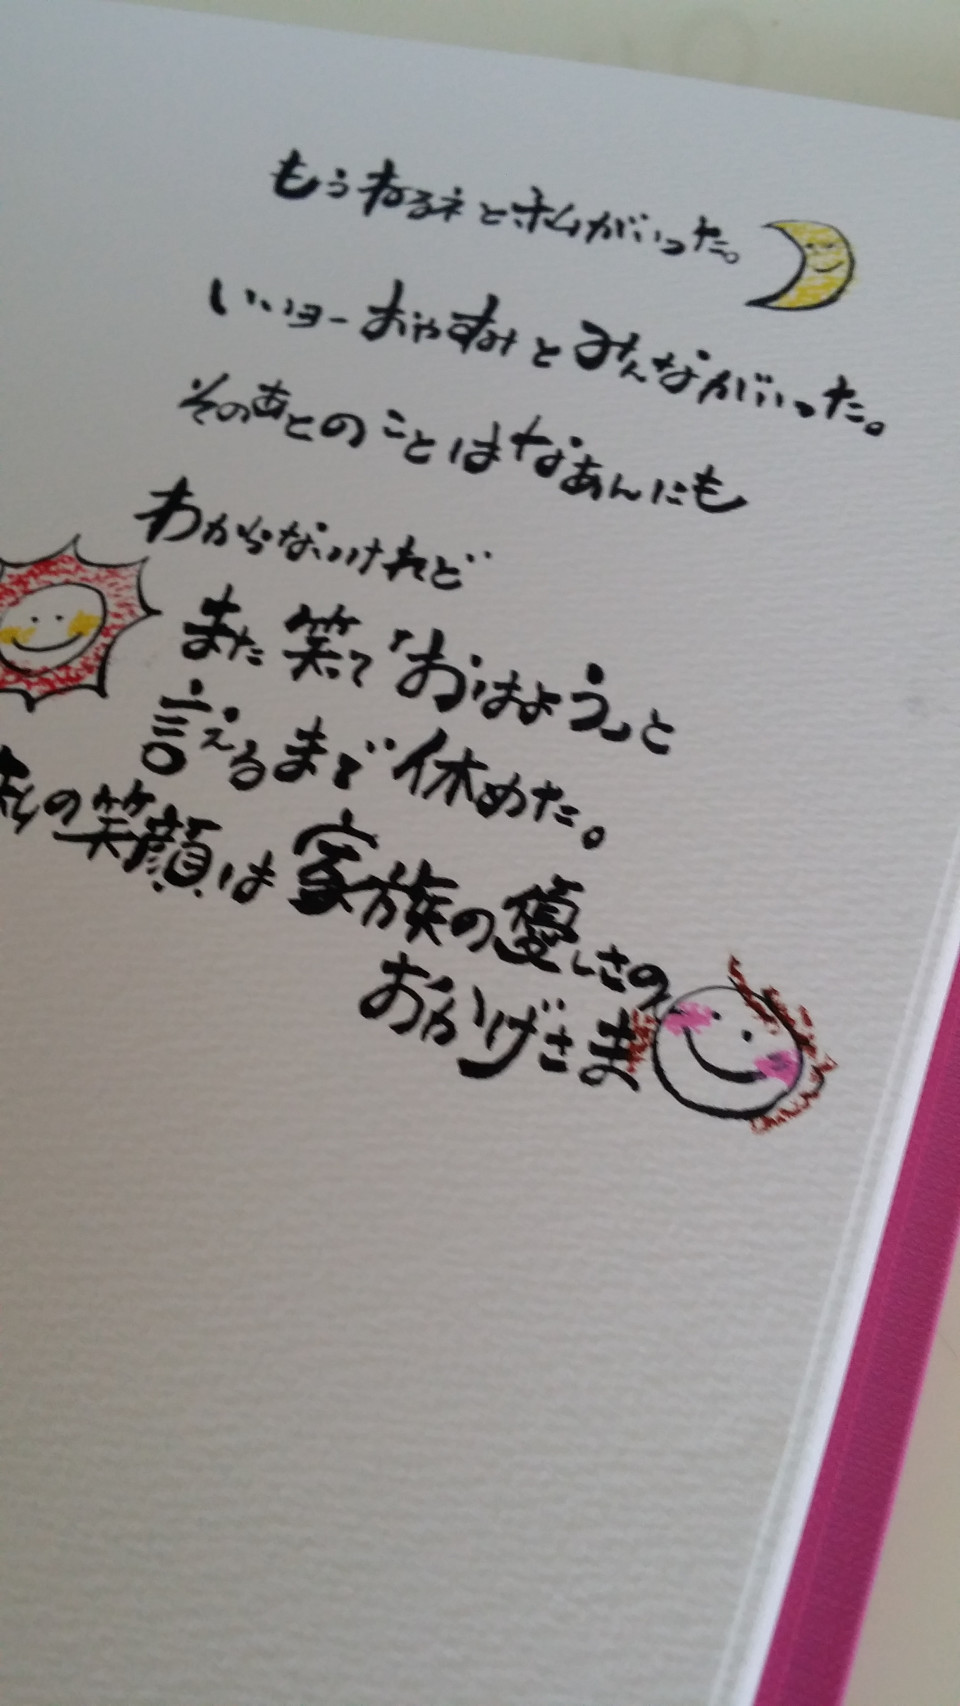 もうねるネとホムがいった。
いいヨーおやすみとみんながいった。
そのあとのことはなあんにも
わからないけれど
また笑って「おはよう」と
言えるまで休めた。
私の笑顔は家族の優しさの
おかげさま